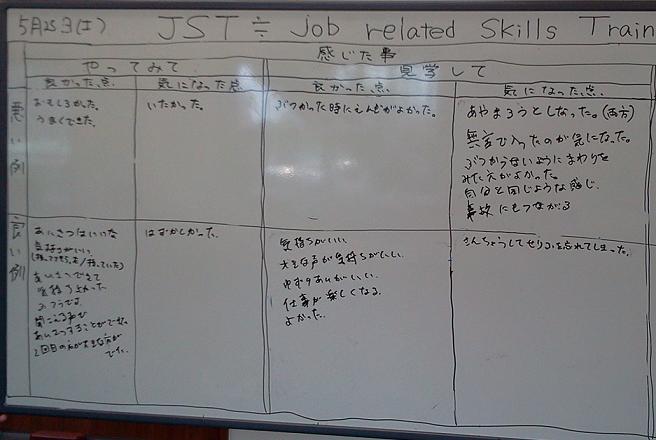 5月25日(土) JST≒Job related Skills Train
感じた事
やってみて 見学して
良かった点 気になった点 良かった点 気になった点
悪い例
おもしろかった。
うまくできた。
いたかった。
ぶつかった時にえんぎがよかった。
あやまろうとしなった。(両方)
無言で入ったのが気になった。
ぶつからないようにまわりを
みた方がよかった。
自分と同じような感じ.
事故にもつながる
良い例
あいさつはいいな
気持ちがいい
あいさつできて
気持ちよかった
ふつうです。
聞こえる声で
あいさつすることができた。
2回目の方が大きな声が
でた。
はずかしかった。
気持ちがいい。
大きな声が気持ちがいい。
ゆずりあいがいい。
仕事が楽しくなる。
よかった。
きんちょうしてせりふを忘れてしまった。